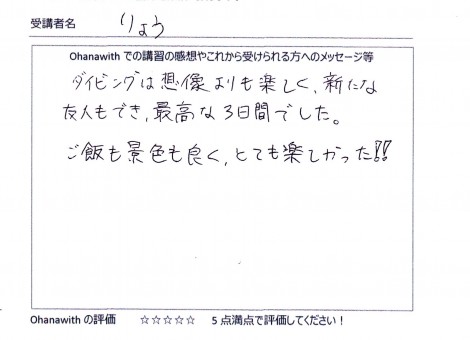 受講者名 りょう
Ohanawith での講習の感想やこれから受けられる方へのメッセージ等
ダイビングは想像よりも楽しく、新たな
友人もでき、最高な3日間でした。
ご飯も景色も良く、とても楽しかった!!
Ohanawith の評価 ☆☆☆☆☆ 5点満点で評価してください！